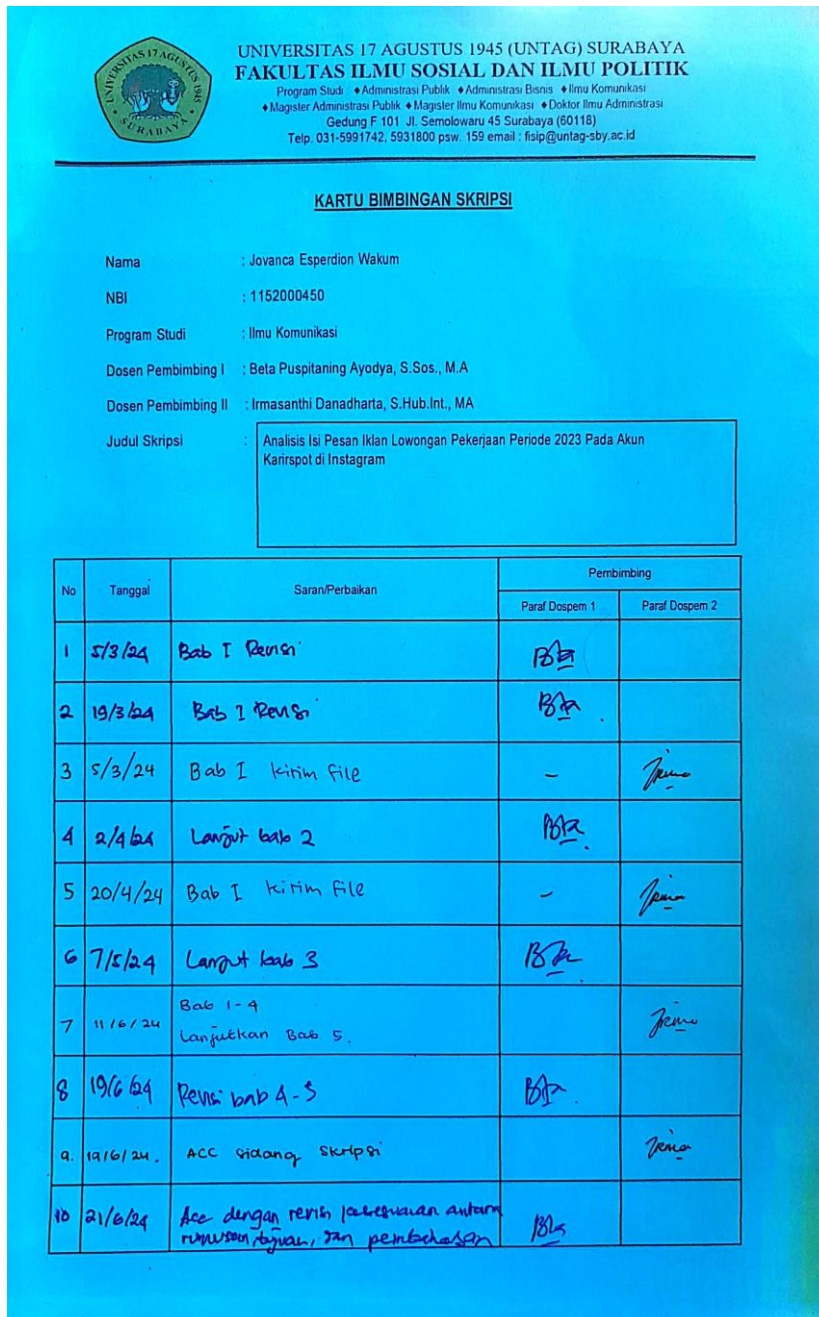 UNIVERSITAS 17 AGUSTUS 1945
SURABAYA
UNIVERSITAS 17 AGUSTUS 1945 (UNTAG) SURABAYA
FAKULTAS ILMU SOSIAL DAN ILMU POLITIK
Program Studi ♦Administrasi Publik ♦Administrasi Bisnis ♦Ilmu Komunikasi
♦Magister Administrasi Publik ♦Magister Ilmu Komunikasi ♦Doktor Ilmu Administrasi
Gedung F 101 Jl. Semolowaru 45 Surabaya (60118)
Telp. 031-5991742, 5931800 psw. 159 email : fisip@untag-sby.ac.id
KARTU BIMBINGAN SKRIPSI
Nama : Jovanca Esperdion Wakum
NBI : 1152000450
Program Studi : Ilmu Komunikasi
Dosen Pembimbing I : Beta Puspitaning Ayodya, S.Sos., M.A
Dosen Pembimbing II : Irmasanthi Danadharta, S.Hub.Int., MA
Judul Skripsi : Analisis Isi Pesan Iklan Lowongan Pekerjaan Periode 2023 Pada Akun
Karirspot di Instagram
No Tanggal Saran/Perbaikan Pembimbing
Paraf Dospem 1 Paraf Dospem 2
1 5/3/24 Bab I Revisi
2 19/3/24 Bab I Revisi
3 5/3/24 Bab I kirim file -
4 2/4/24 Lanjut bab 2
5 20/4/24 Bab I kirim file -
6 7/5/24 Lanjut bab 3
7 11/6/24 Bab 1-4
Lanjutkan Bab 5.
8 19/6/24 Revisi bab 4-5
9. 19/6/24. ACC sidang skripsi
10 21/6/24 Acc dengan revisi kesesuaian antara
rumusan, tujuan, dan pembahasan